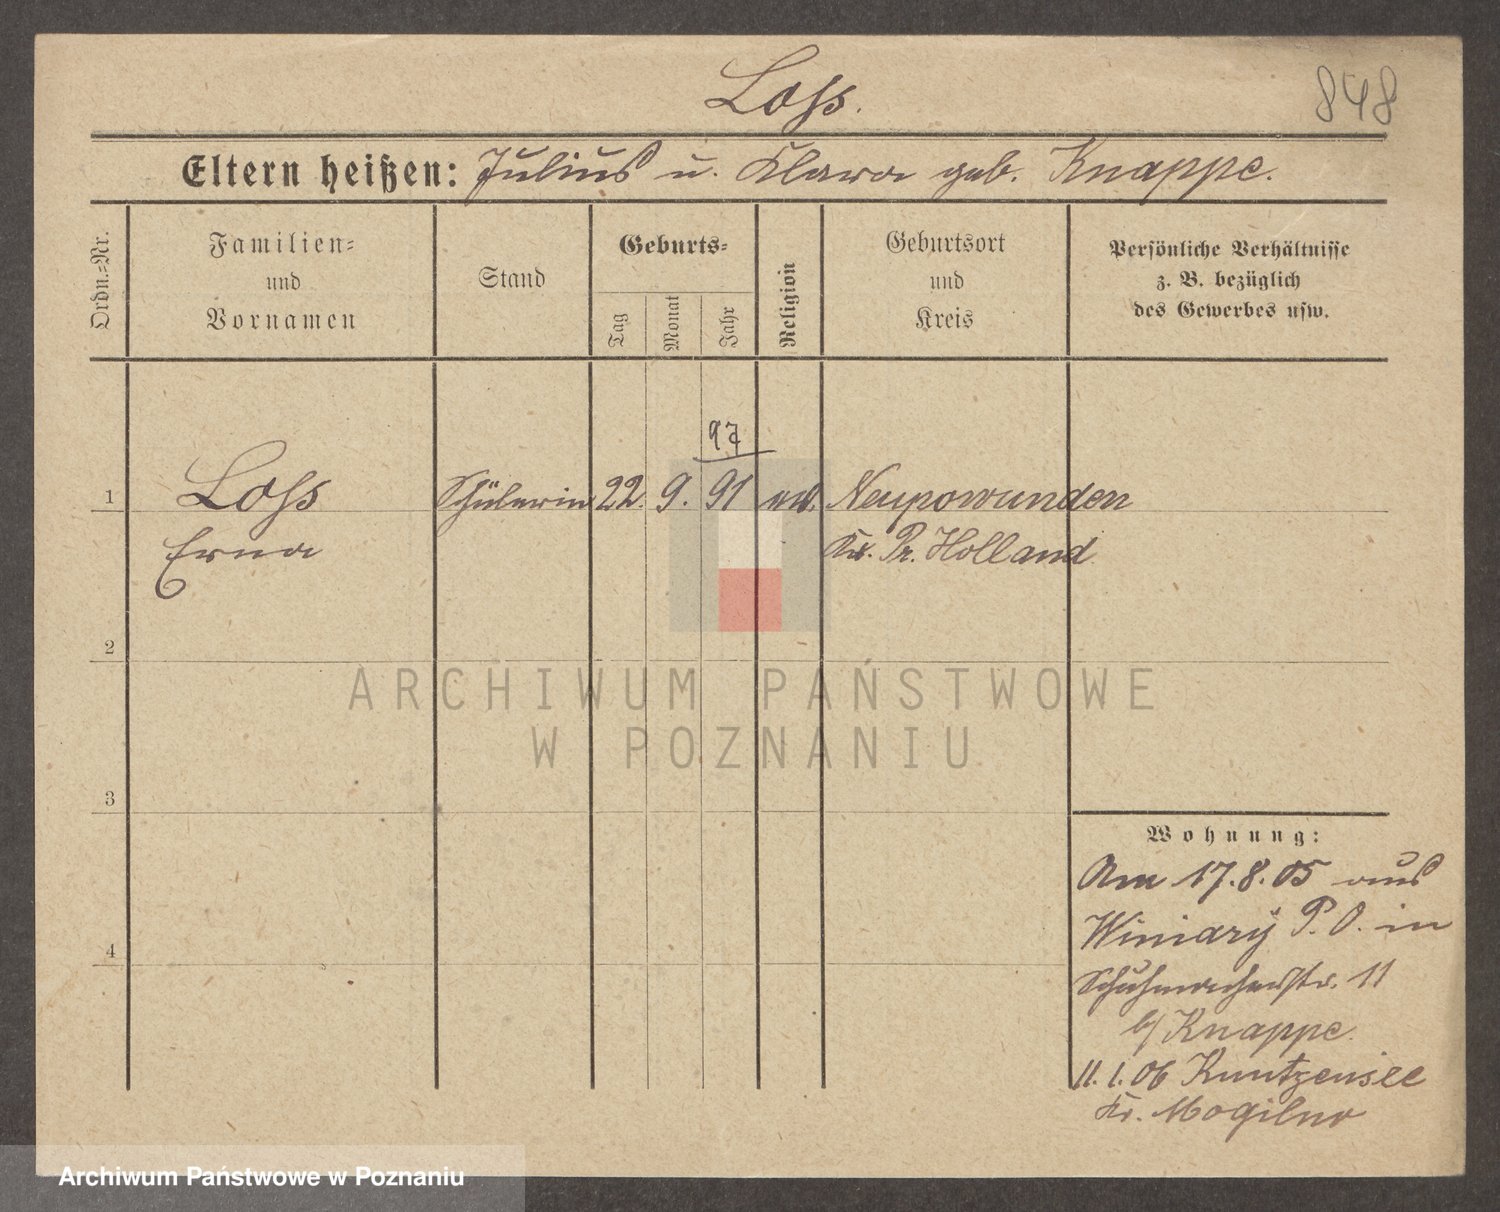 Loss.
848
Eltern heißen: Julius u. Klara geb. Knappe.
Ordn.-Nr.
Familien-
und
Vornamen
Stand
Geburts-
Tag
Monat
Jahr
Religion
Geburtsort
und
Kreis
Persönliche Verhältnisse
z. B. bezüglich
des Gewerbes usw.
97
1 Loss Schülerin 22. 9. 91 ev. Neupowunden
Erna Kr. Pr. Holland
2
ARCHIWUM PAŃSTWOWE
W POZNANIU
3
Wohnung:
Am 17.8.05 aus
Winiary P. O. in
4
Schuhmacherstr. 11
b/ Knappe.
11.1.06 Kuntzensee
Kr. Mogilno
Archiwum Państwowe w Poznaniu